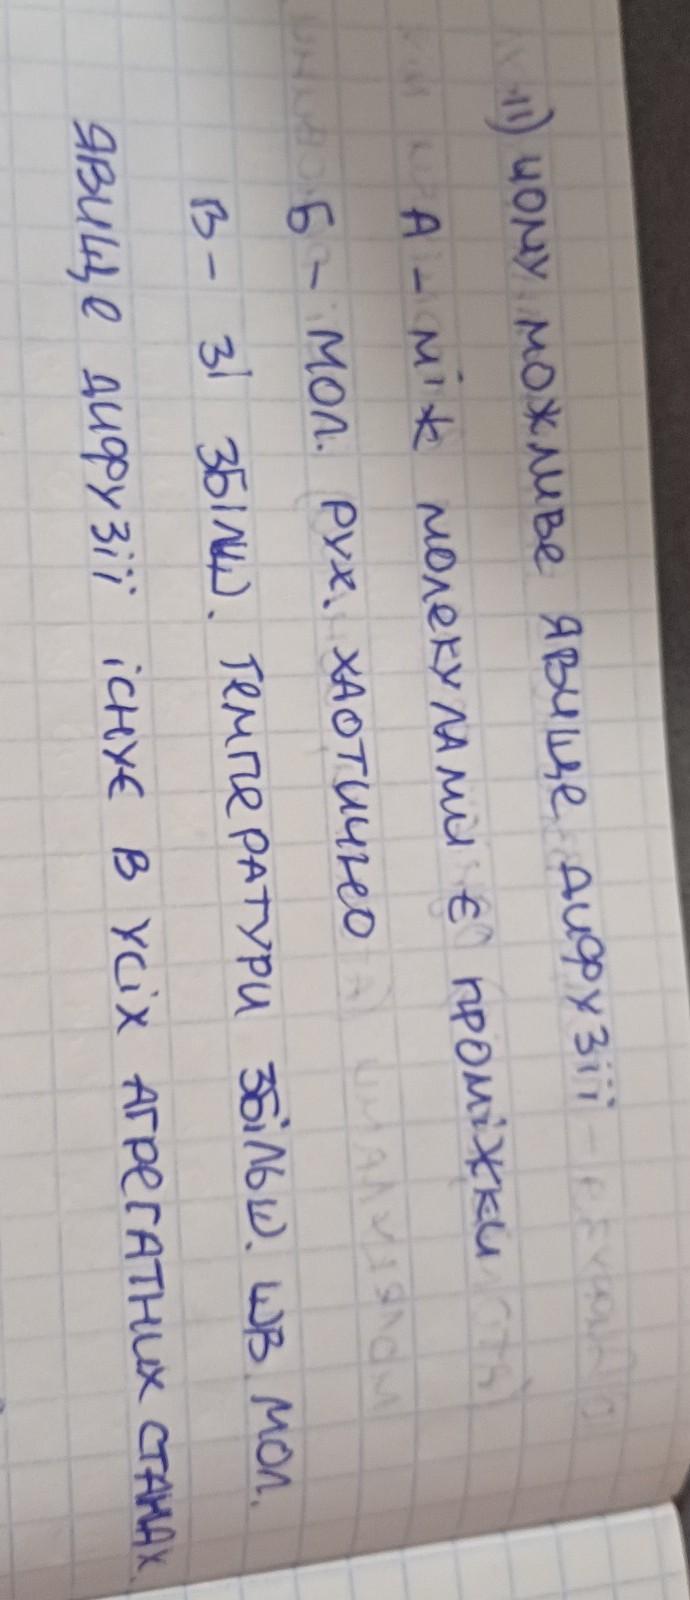 11) чому можливе явище дифузії
А - між молекулами є проміжки
Б - мол. рух. хаотично
В - зі збільш. температури збільш. шв. мол.
явище дифузії існує в усіх агрегатних станах